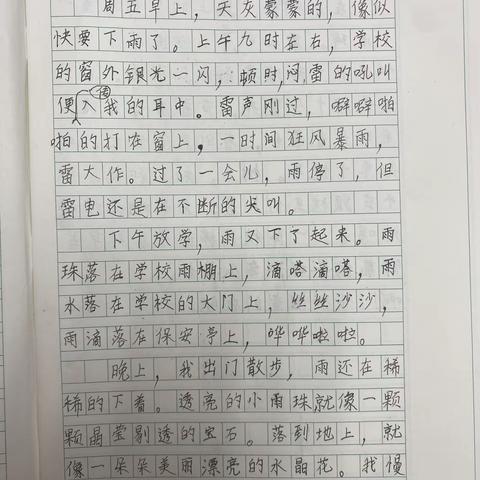 周五早上，天灰蒙蒙的，像似
快要下雨了。上午九时左右，学校
的窗外银光一闪，顿时，闷雷的吼叫
便传入我的耳中。雷声刚过，噼噼啪
啪的打在窗上，一时间狂风暴雨，
雷大作。过了一会儿，雨停了，但
雷电还是在不断的尖叫。
下午放学，雨又下了起来。雨
珠落在学校雨棚上，滴嗒滴嗒，雨
水落在学校的大门上，丝丝沙沙，
雨滴落在保安亭上，哗哗啦啦。
晚上，我出门散步，雨还在稀
稀的下着。透亮的小雨珠就像一颗
颗晶莹剔透的宝石。落到地上，就
像一朵朵美丽漂亮的水晶花。我慢